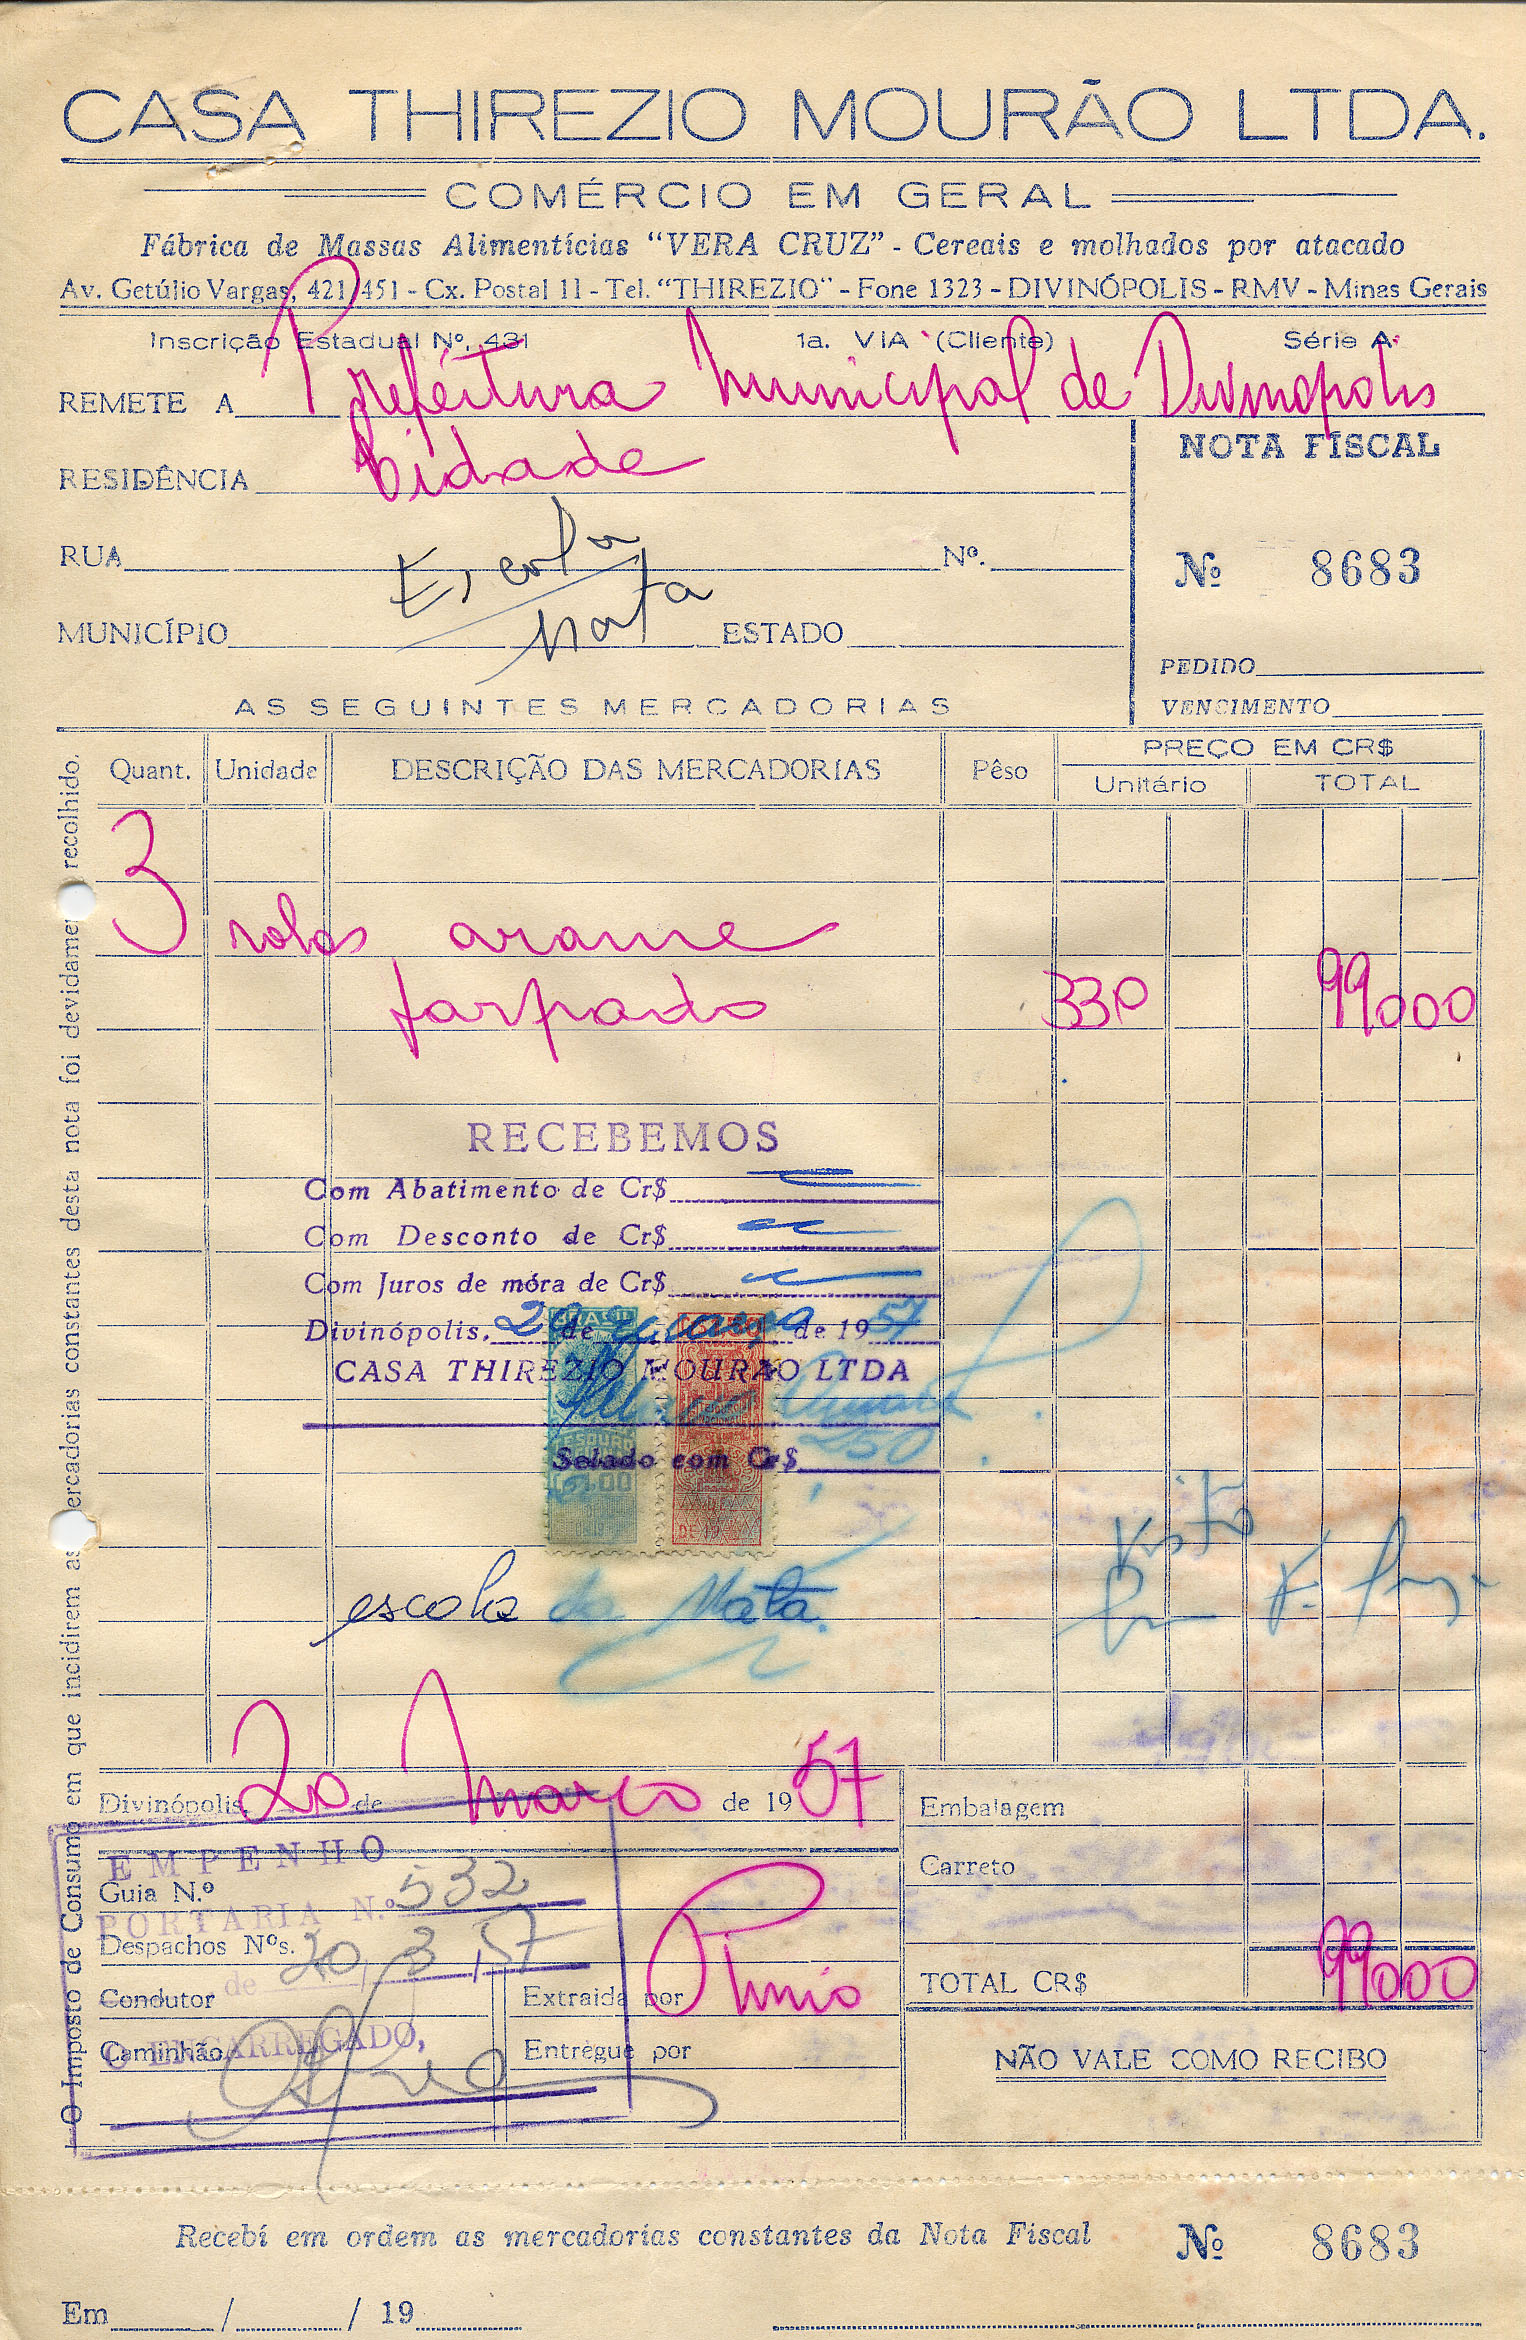 CASA THIREZIO MOURÃO LTDA.
COMÉRCIO EM GERAL
Fábrica de Massas Alimentícias "VERA CRUZ" - Cereais e molhados por atacado
Av. Getúlio Vargas, 421/451 - Cx. Postal 11 - Tel. "THIREZIO" - Fone 1323 - DIVINÓPOLIS - RMV - Minas Gerais
Inscrição Estadual Nº. 431 1a. VIA (Cliente) Série A
REMETE A Prefeitura Municipal de Divinopolis
RESIDÊNCIA Cidade
NOTA FISCAL
RUA Escola Nº.
Nº 8683
MUNICÍPIO Mata ESTADO
PEDIDO
VENCIMENTO
AS SEGUINTES MERCADORIAS
Quant. Unidade DESCRIÇÃO DAS MERCADORIAS Pêso PREÇO EM CR$
Unitário TOTAL
3 rolos arame
farpado 330 99000
RECEBEMOS
Com Abatimento de Cr$
Com Desconto de Cr$
Com Juros de móra de Cr$
Divinópolis, 20 de março de 1957
CASA THIREZIO MOURÃO LTDA
Selado com Cr$ 250
Visto
escola da Mata.
Divinópolis, 20 de Março de 1957
Embalagem
EMPENHO
Carreto
Guia N.º
PORTARIA N.º 532
Despachos Nºs.
20 / 3 / 57
de
TOTAL CR$ 99000
Condutor
Extraida por Plinio
O ENCARREGADO,
Caminhão
Entregue por
NÃO VALE COMO RECIBO
O Imposto de Consumo em que incidirem as mercadorias constantes desta nota foi devidamente recolhido.
Recebí em ordem as mercadorias constantes da Nota Fiscal Nº 8683
Em / / 19